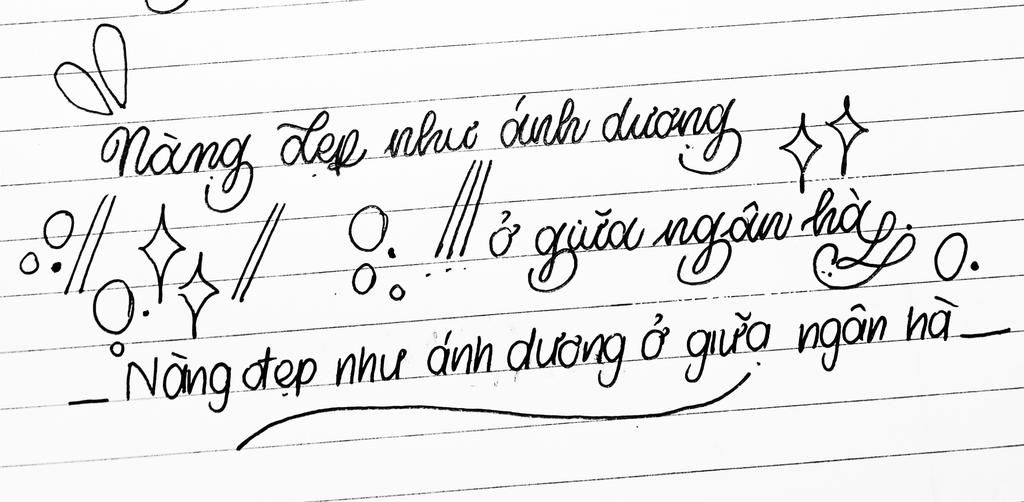 Nàng đẹp như ánh dương
ở giữa ngân hà.
Nàng đẹp như ánh dương ở giữa ngân hà